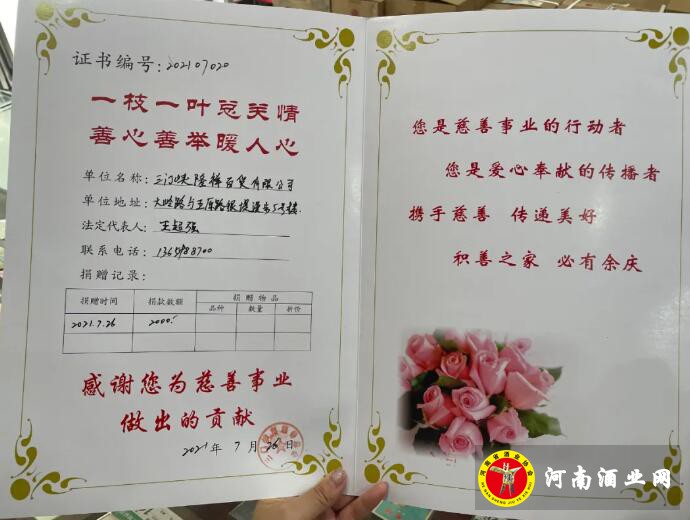 证书编号:202107020
一枝一叶总关情
善心善举暖人心
单位名称:三门峡隆祥百货有限公司
单位地址:大岭路与五原路
法定代表人:王超强
联系电话:
捐赠记录:
捐赠时间 捐款数额 捐赠物品
品种 数量 折价
2021.7.26 2000
感谢您为慈善事业
做出的贡献
2021年7月26日
您是慈善事业的行动者
您是爱心奉献的传播者
携手慈善 传递美好
积善之家 必有余庆
河南省酒业协会
河南酒业网